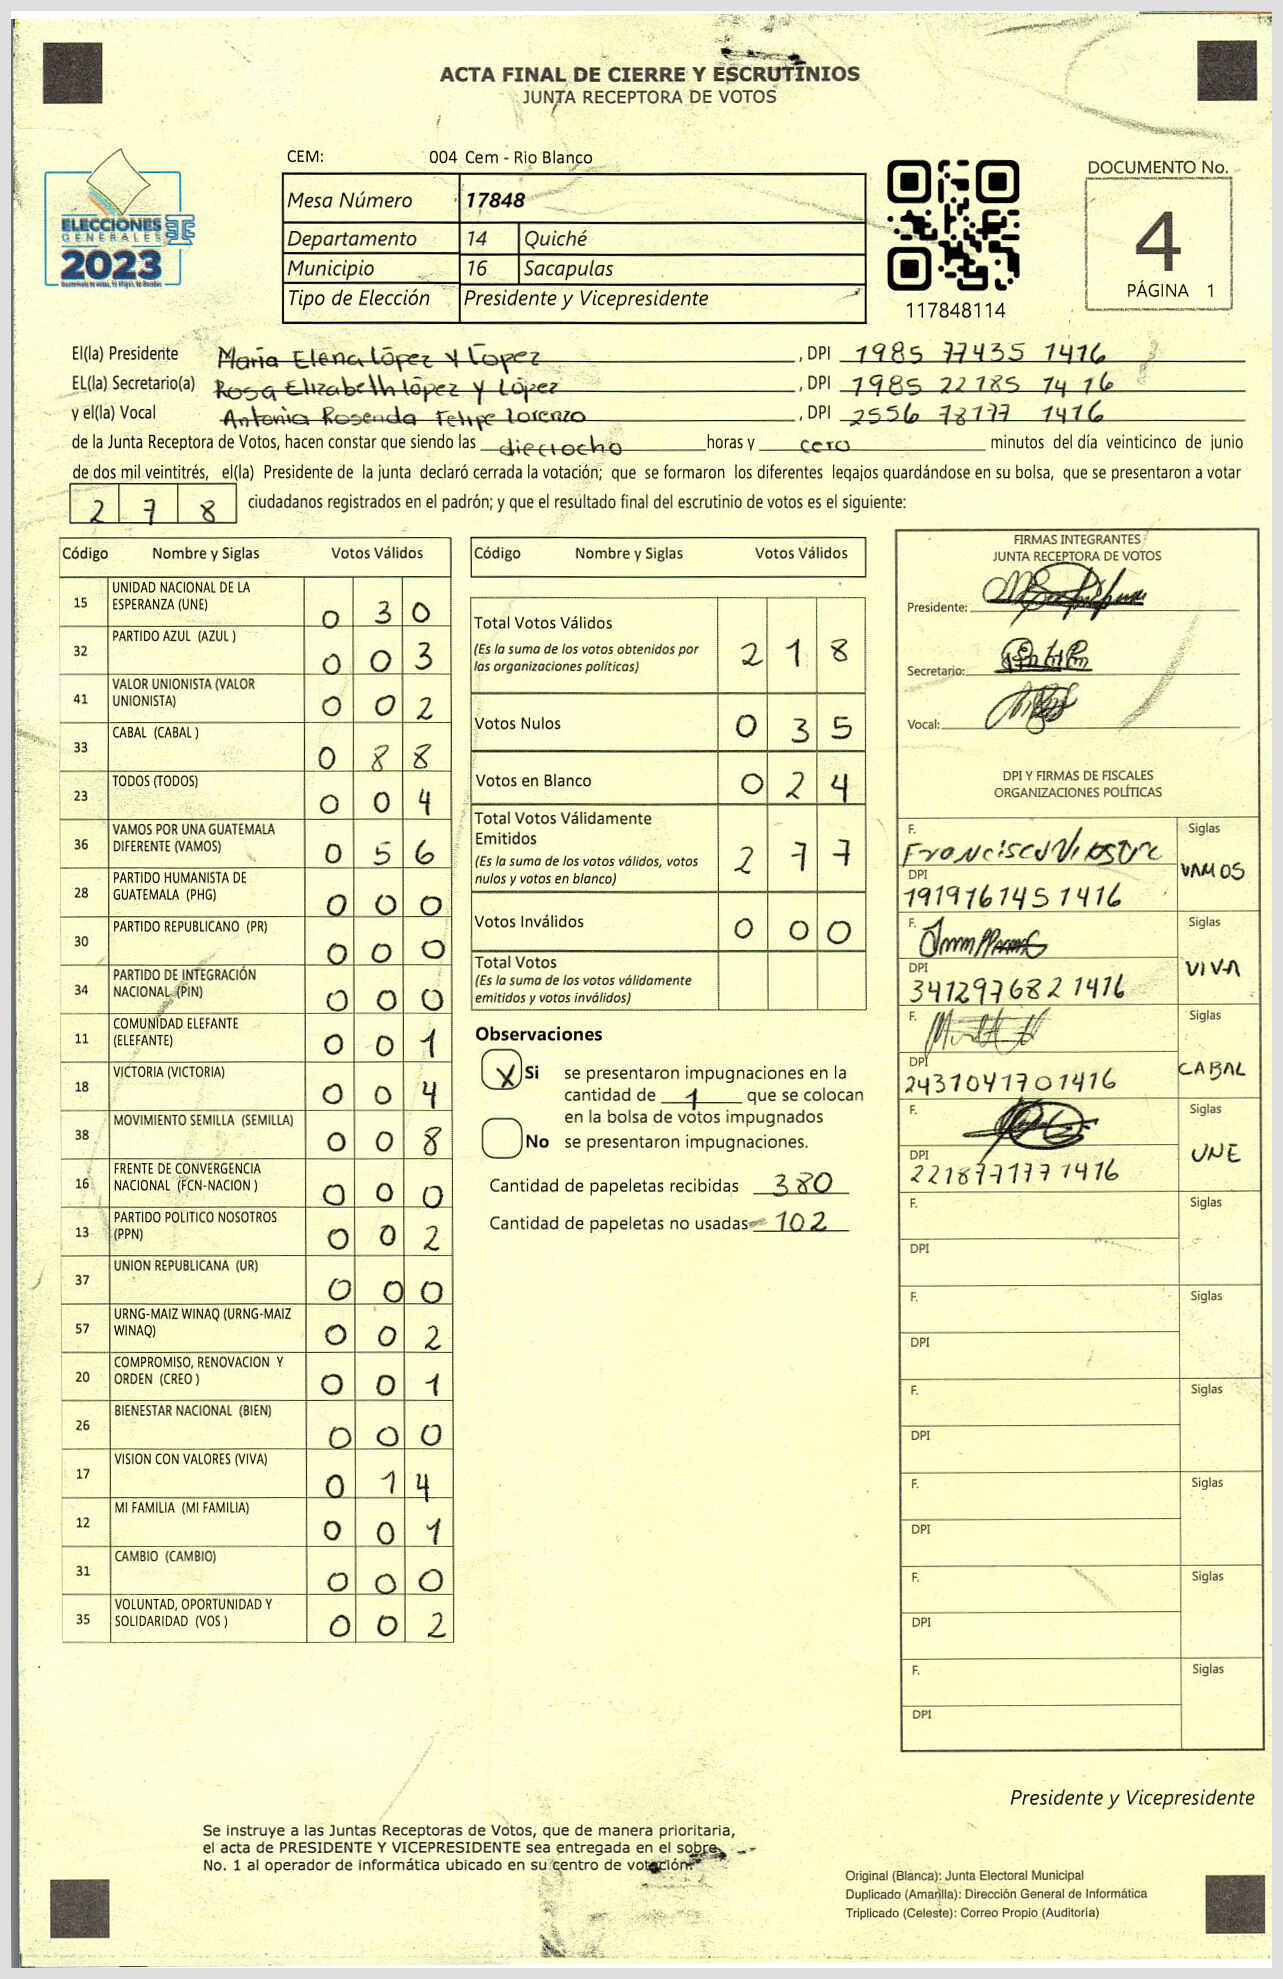 ACTA FINAL DE CIERRE Y ESCRUTINIOS
JUNTA RECEPTORA DE VOTOS
ELECCIONES
GENERALES
2023
CEM: 004 Cem - Rio Blanco
Mesa Número 17848
Departamento 14 Quiché
Municipio 16 Sacapulas
Tipo de Elección Presidente y Vicepresidente
117848114
DOCUMENTO No.
4
PÁGINA 1
El(la) Presidente Maria Elena López y Lopez , DPI 1985 77435 1416
EL(la) Secretario(a) Rosa Elizabeth lópez y López , DPI 1985 22185 1416
y el(la) Vocal Antonia Rosenda Felipe Lorenzo , DPI 2556 78177 1416
de la Junta Receptora de Votos, hacen constar que siendo las dieciocho horas y cero minutos del día veinticinco de junio
de dos mil veintitrés, el(la) Presidente de la junta declaró cerrada la votación; que se formaron los diferentes legajos guardándose en su bolsa, que se presentaron a votar
2 7 8 ciudadanos registrados en el padrón; y que el resultado final del escrutinio de votos es el siguiente:
Código Nombre y Siglas Votos Válidos
15 UNIDAD NACIONAL DE LA ESPERANZA (UNE) 0 3 0
32 PARTIDO AZUL (AZUL ) 0 0 3
41 VALOR UNIONISTA (VALOR UNIONISTA) 0 0 2
33 CABAL (CABAL ) 0 8 8
23 TODOS (TODOS) 0 0 4
36 VAMOS POR UNA GUATEMALA DIFERENTE (VAMOS) 0 5 6
28 PARTIDO HUMANISTA DE GUATEMALA (PHG) 0 0 0
30 PARTIDO REPUBLICANO (PR) 0 0 0
34 PARTIDO DE INTEGRACIÓN NACIONAL (PIN) 0 0 0
11 COMUNIDAD ELEFANTE (ELEFANTE) 0 0 1
18 VICTORIA (VICTORIA) 0 0 4
38 MOVIMIENTO SEMILLA (SEMILLA) 0 0 8
16 FRENTE DE CONVERGENCIA NACIONAL (FCN-NACION ) 0 0 0
13 PARTIDO POLITICO NOSOTROS (PPN) 0 0 2
37 UNION REPUBLICANA (UR) 0 0 0
57 URNG-MAIZ WINAQ (URNG-MAIZ WINAQ) 0 0 2
20 COMPROMISO, RENOVACION Y ORDEN (CREO ) 0 0 1
26 BIENESTAR NACIONAL (BIEN) 0 0 0
17 VISION CON VALORES (VIVA) 0 1 4
12 MI FAMILIA (MI FAMILIA) 0 0 1
31 CAMBIO (CAMBIO) 0 0 0
35 VOLUNTAD, OPORTUNIDAD Y SOLIDARIDAD (VOS ) 0 0 2
Código Nombre y Siglas Votos Válidos
Total Votos Válidos
(Es la suma de los votos obtenidos por
las organizaciones políticas) 2 1 8
Votos Nulos 0 3 5
Votos en Blanco 0 2 4
Total Votos Válidamente
Emitidos
(Es la suma de los votos válidos, votos
nulos y votos en blanco) 2 7 7
Votos Inválidos 0 0 0
Total Votos
(Es la suma de los votos válidamente
emitidos y votos inválidos)
Observaciones
X Si se presentaron impugnaciones en la
cantidad de 1 que se colocan
en la bolsa de votos impugnados
No se presentaron impugnaciones.
Cantidad de papeletas recibidas 380
Cantidad de papeletas no usadas 102
FIRMAS INTEGRANTES
JUNTA RECEPTORA DE VOTOS
Presidente:
Secretario:
Vocal:
DPI Y FIRMAS DE FISCALES
ORGANIZACIONES POLÍTICAS
F. Francisco Siglas
VAMOS
DPI
1919761451416
F. Siglas
VIVA
DPI
3412976821416
F. Siglas
CABAL
DPI
2431041701416
F. Siglas
UNE
DPI
2218771771416
F. Siglas
DPI
F. Siglas
DPI
F. Siglas
DPI
F. Siglas
DPI
F. Siglas
DPI
F. Siglas
DPI
Presidente y Vicepresidente
Se instruye a las Juntas Receptoras de Votos, que de manera prioritaria,
el acta de PRESIDENTE Y VICEPRESIDENTE sea entregada en el sobre
No. 1 al operador de informática ubicado en su centro de votación.
Original (Blanca): Junta Electoral Municipal
Duplicado (Amarilla): Dirección General de Informática
Triplicado (Celeste): Correo Propio (Auditoría)